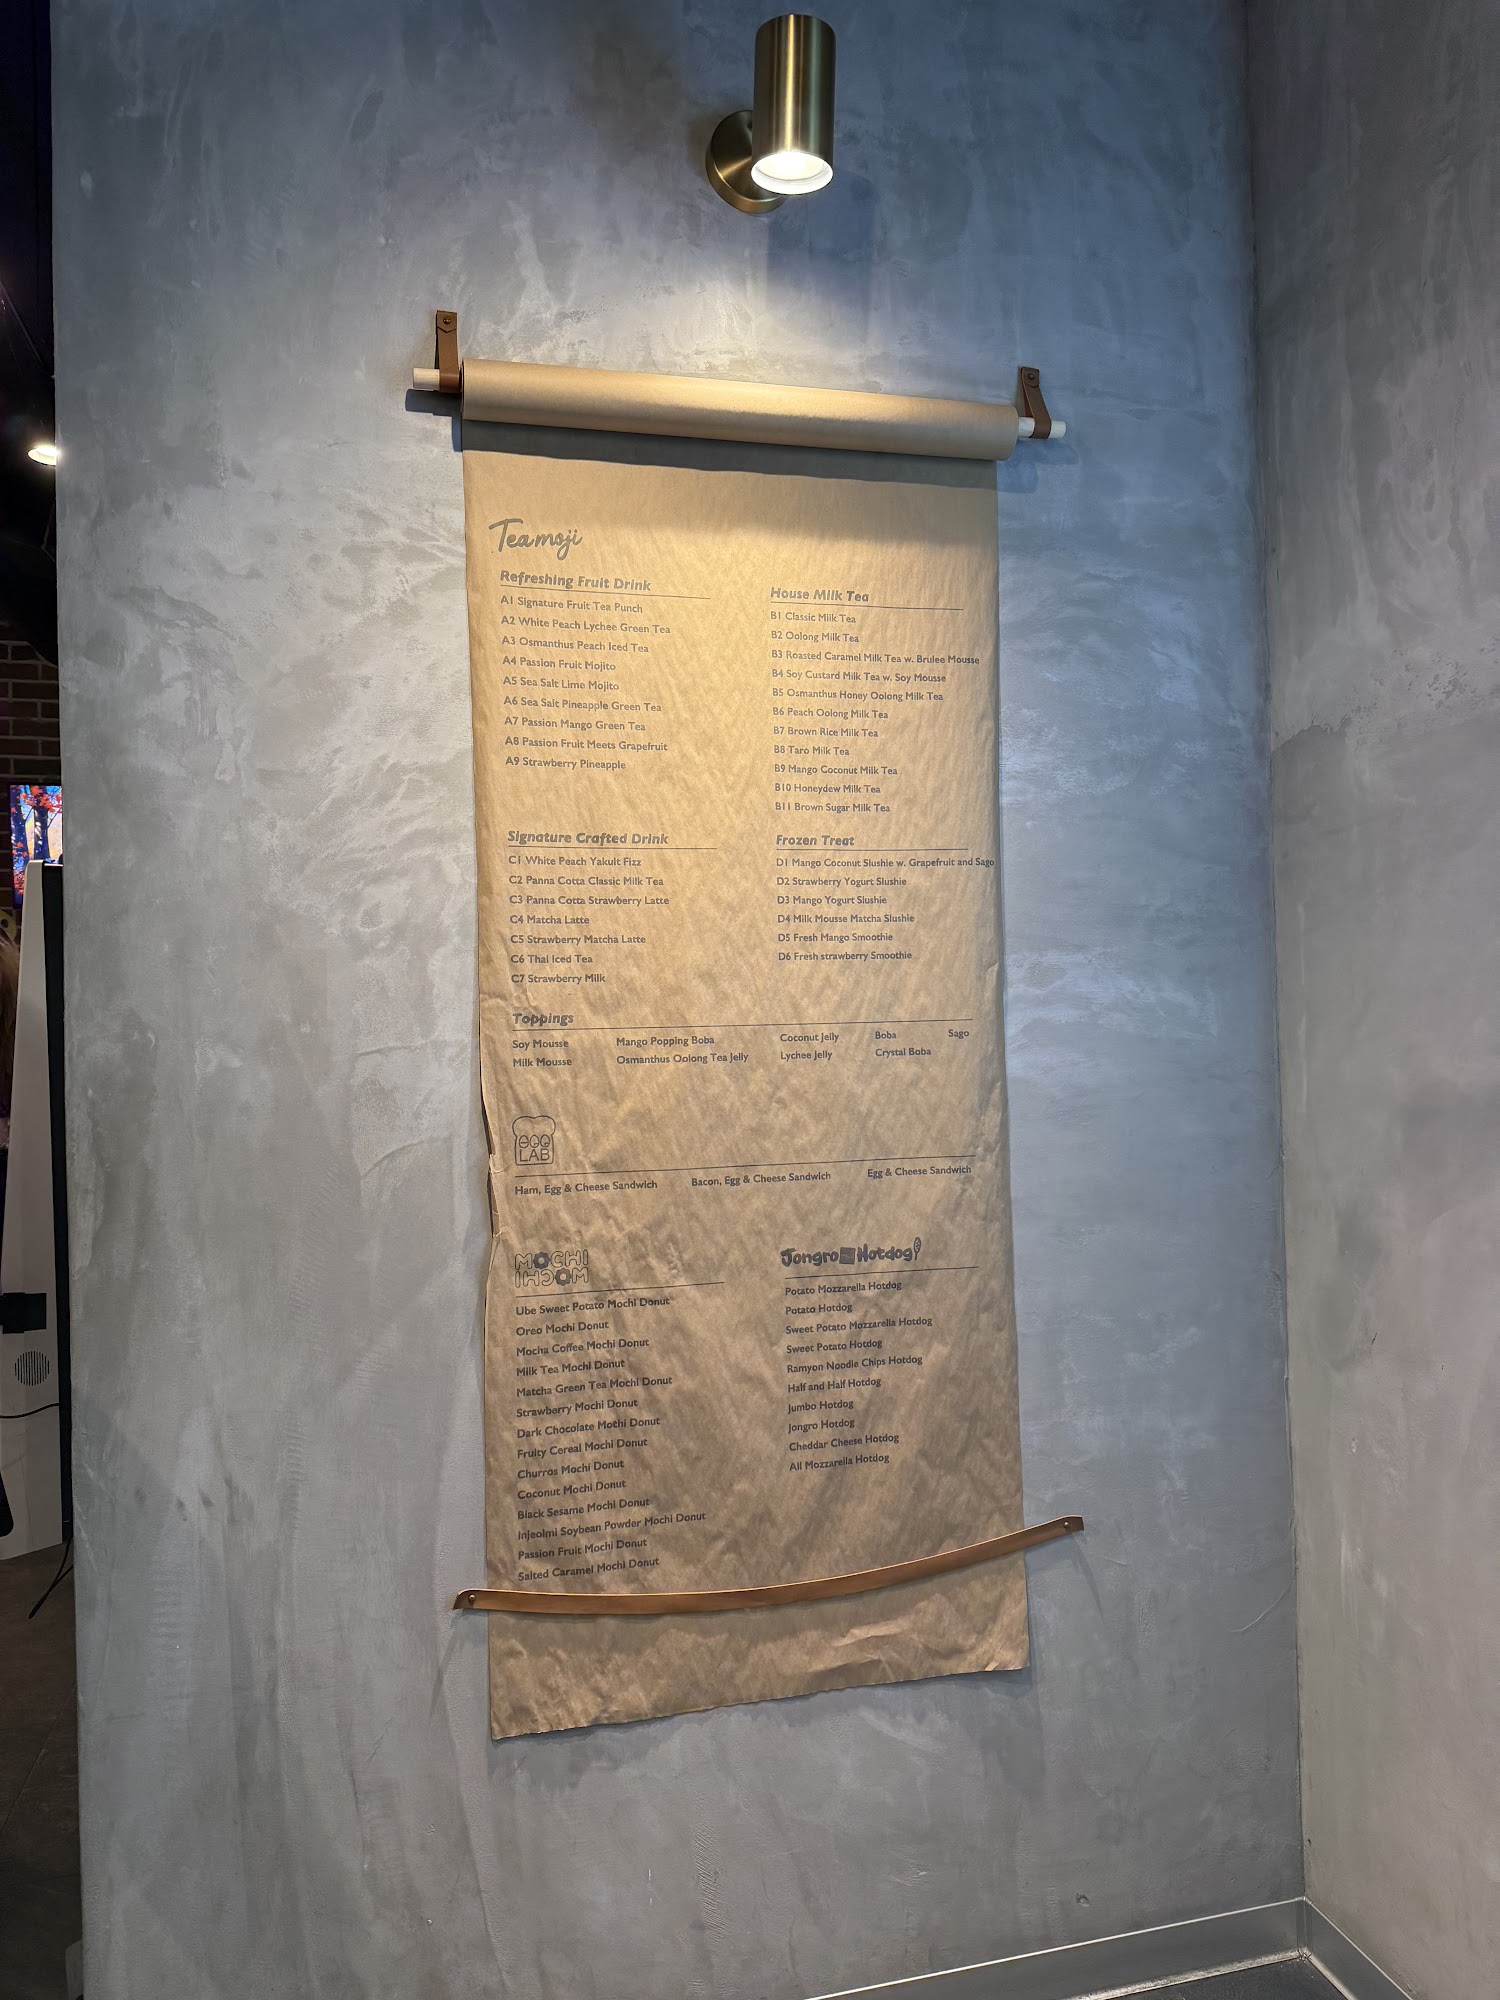 Teamoji
Refreshing Fruit Drink
A1 Signature Fruit Tea Punch
A2 White Peach Lychee Green Tea
A3 Osmanthus Peach Iced Tea
A4 Passion Fruit Mojito
A5 Sea Salt Lime Mojito
A6 Sea Salt Pineapple Green Tea
A7 Passion Mango Green Tea
A8 Passion Fruit Meets Grapefruit
A9 Strawberry Pineapple
House Milk Tea
B1 Classic Milk Tea
B2 Oolong Milk Tea
B3 Roasted Caramel Milk Tea w. Brulee Mousse
B4 Soy Custard Milk Tea w. Soy Mousse
B5 Osmanthus Honey Oolong Milk Tea
B6 Peach Oolong Milk Tea
B7 Brown Rice Milk Tea
B8 Taro Milk Tea
B9 Mango Coconut Milk Tea
B10 Honeydew Milk Tea
B11 Brown Sugar Milk Tea
Signature Crafted Drink
C1 White Peach Yakult Fizz
C2 Panna Cotta Classic Milk Tea
C3 Panna Cotta Strawberry Latte
C4 Matcha Latte
C5 Strawberry Matcha Latte
C6 Thai Iced Tea
C7 Strawberry Milk
Frozen Treat
D1 Mango Coconut Slushie w. Grapefruit and Sago
D2 Strawberry Yogurt Slushie
D3 Mango Yogurt Slushie
D4 Milk Mousse Matcha Slushie
D5 Fresh Mango Smoothie
D6 Fresh strawberry Smoothie
Toppings
Soy Mousse Mango Popping Boba Coconut Jelly Boba Sago
Milk Mousse Osmanthus Oolong Tea Jelly Lychee Jelly Crystal Boba
EGG
LAB
Ham, Egg & Cheese Sandwich Bacon, Egg & Cheese Sandwich Egg & Cheese Sandwich
MOCHI
MOCHI
Ube Sweet Potato Mochi Donut
Oreo Mochi Donut
Mocha Coffee Mochi Donut
Milk Tea Mochi Donut
Matcha Green Tea Mochi Donut
Strawberry Mochi Donut
Dark Chocolate Mochi Donut
Fruity Cereal Mochi Donut
Churros Mochi Donut
Coconut Mochi Donut
Black Sesame Mochi Donut
Injeolmi Soybean Powder Mochi Donut
Passion Fruit Mochi Donut
Salted Caramel Mochi Donut
Jongro Hotdog
Potato Mozzarella Hotdog
Potato Hotdog
Sweet Potato Mozzarella Hotdog
Sweet Potato Hotdog
Ramyon Noodle Chips Hotdog
Half and Half Hotdog
Jumbo Hotdog
Jongro Hotdog
Cheddar Cheese Hotdog
All Mozzarella Hotdog